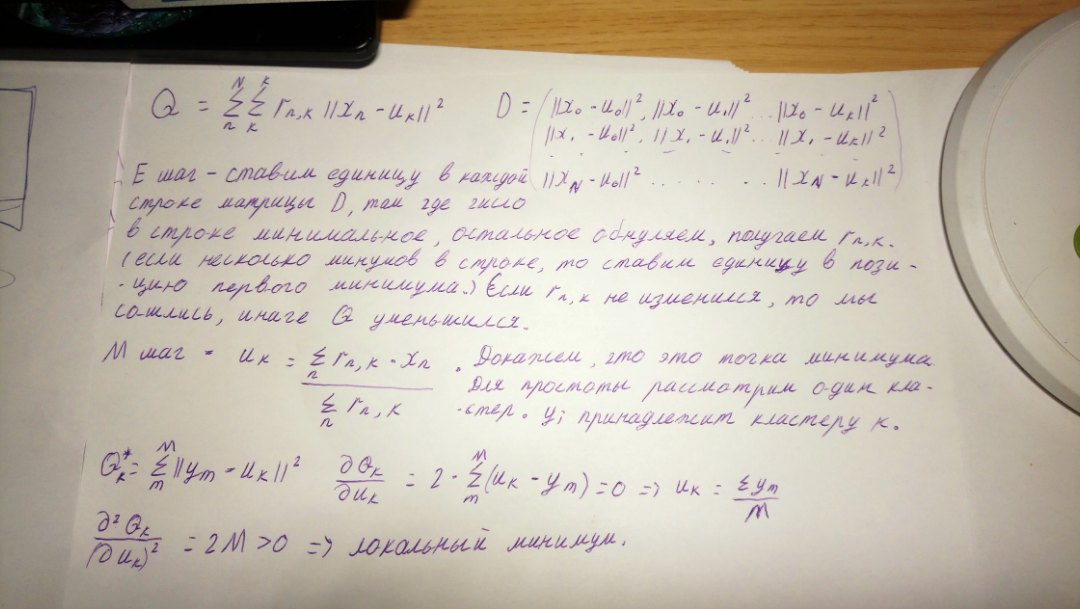 Q = Σ_n^N Σ_k^K r_{n,k} ||x_n - u_k||²
D = ( ||x_0 - u_0||², ||x_0 - u_1||² ... ||x_0 - u_k||²
||x_1 - u_0||², ||x_1 - u_1||² ... ||x_1 - u_k||²
. . . . . . .
||x_N - u_0||² . . . . . . ||x_N - u_k||² )
E шаг - ставим единицу в каждой
строке матрицы D, там где число
в строке минимальное, остальное обнуляем, получаем r_{n,k}.
(если несколько минумов в строке, то ставим единицу в пози-
-цию первого минимума.) Если r_{n,k} не изменился, то мы
сошлись, иначе Q уменьшился.
M шаг - u_k = Σ_n r_{n,k} · x_n / Σ_n r_{n,k} . Докажем, что это точка минимума.
Для простоты рассмотрим один кла-
-стер. y_i принадлежит кластеру k.
Q_k^* = Σ_m^M ||y_m - u_k||² ∂Q_k / ∂u_k = 2 · Σ_m^M (u_k - y_m) = 0 => u_k = Σ y_m / M
∂²Q_k / (∂u_k)² = 2M > 0 => локальный минимум.